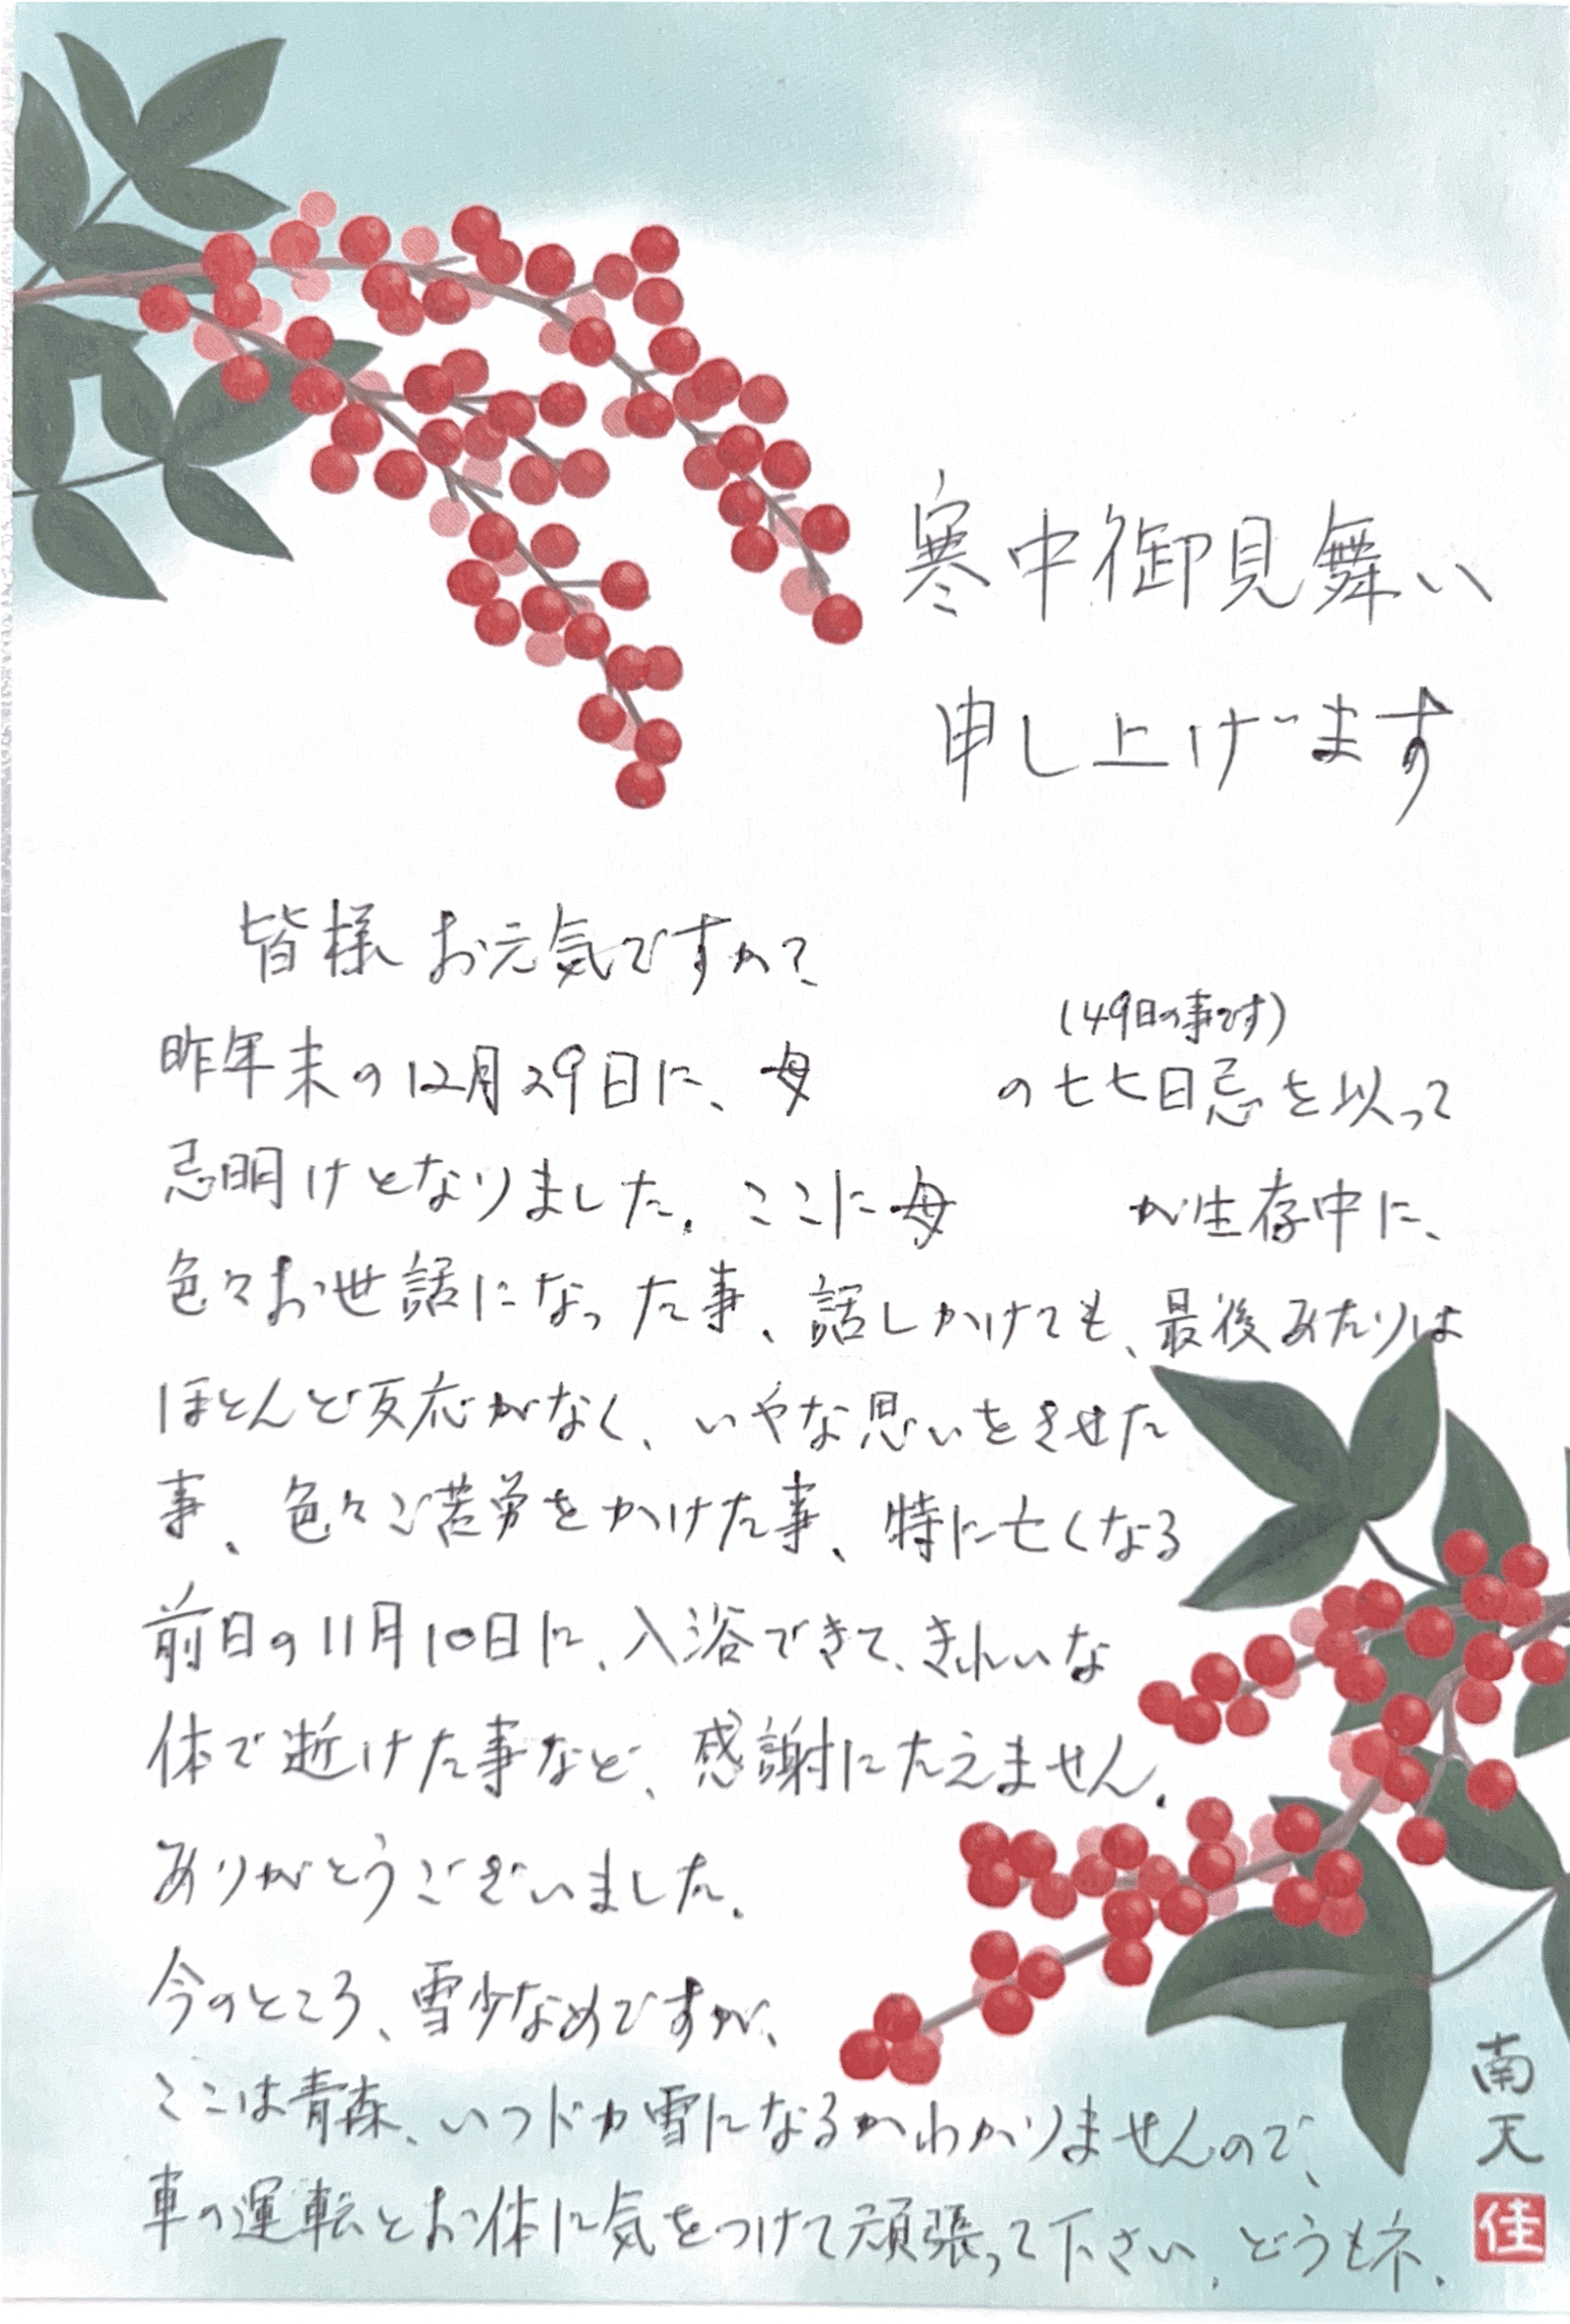 寒中御見舞い
申し上げます
皆様お元気ですか？
(49日の事です)
昨年末の12月29日に、母 の七七日忌を以って
忌明けとなりました。ここに母 が生存中に、
色々お世話になった事、話しかけても、最後あたりは
ほとんど反応がなく、いやな思いをさせた
事、色々ご苦労をかけた事、特に亡くなる
前日の11月10日に、入浴できて、きれいな
体で逝けた事など、感謝にたえません。
ありがとうございました。
今のところ、雪少なめですが、
ここは青森、いつドカ雪になるかわかりませんので、
車の運転とお体に気をつけて頑張って下さい。どうもネ。
南天
佳